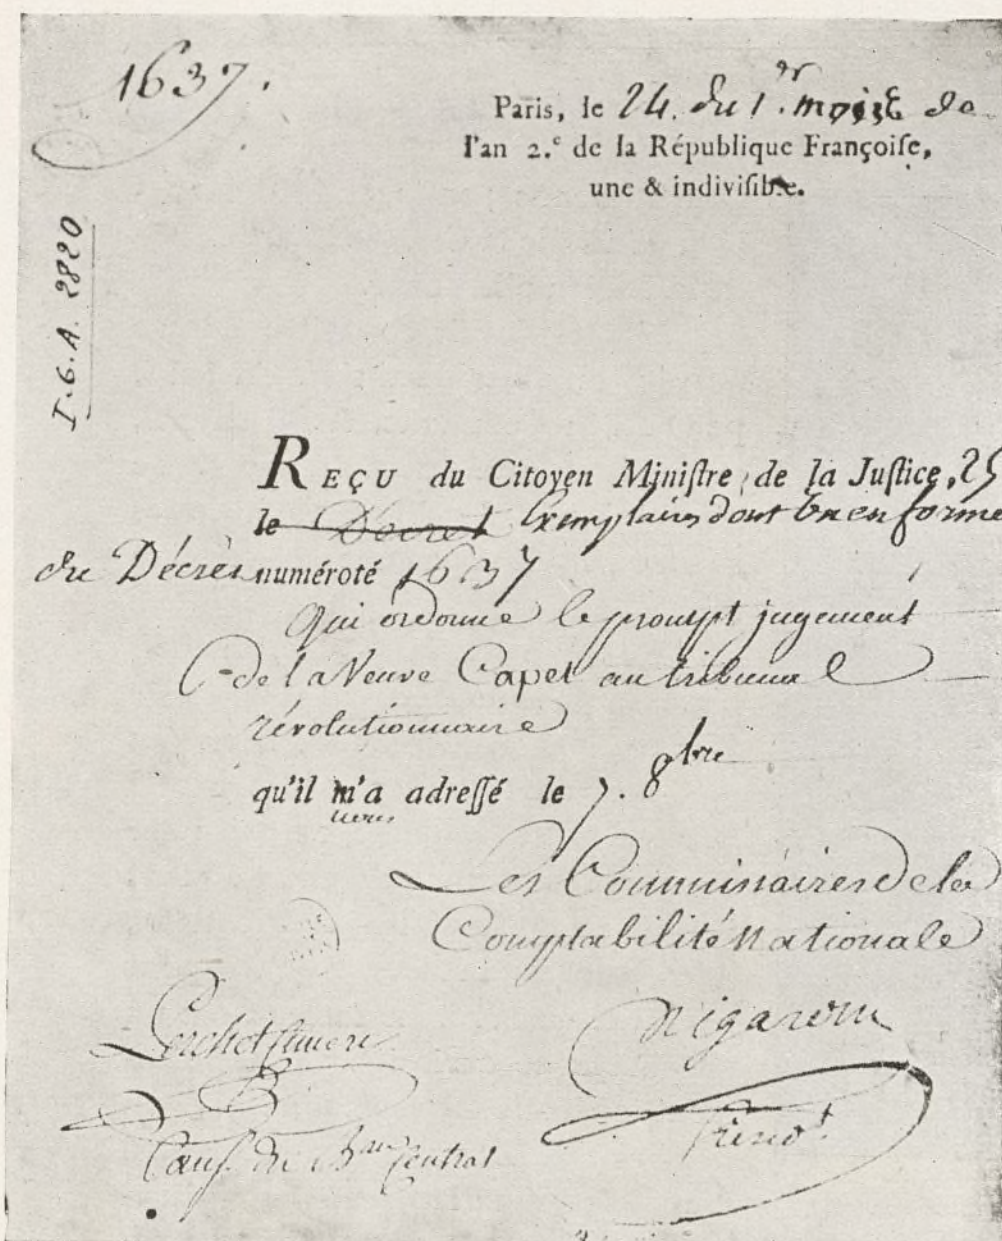 1637.
Paris, le 24. du 1.er mois de
l'an 2.e de la République Françoiſe,
une & indiviſible.
I.G.A. 2820
REÇU du Citoyen Miniſtre de la Juſtice, 25
le Décret Exemplaires dont un en forme
du Décret numéroté 1637
qui ordonne le prompt jugement
de la Veuve Capet au tribunal
révolutionnaire
qu'il m'a adreſſé le 7. 8bre
nous
Les Commissaires de la
Comptabilité Nationale
Com.re du Bau Central